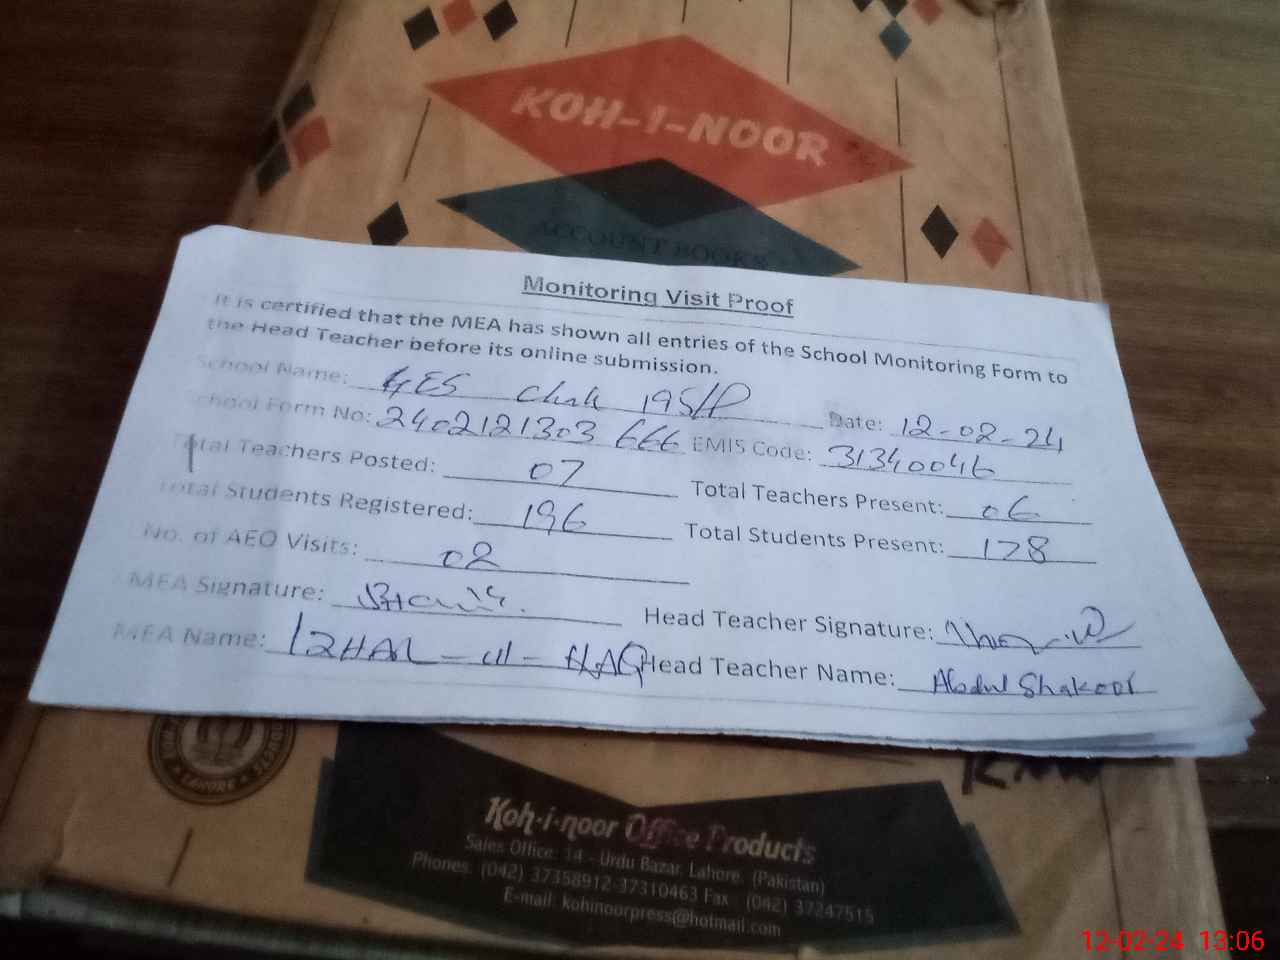 KOH-I-NOOR
ACCOUNT BOOKS
Monitoring Visit Proof
It is certified that the MEA has shown all entries of the School Monitoring Form to
the Head Teacher before its online submission.
School Name: GES Chak 195/P Date: 12-02-24
School Form No: 2402121303 666 EMIS Code: 31340046
Total Teachers Posted: 07 Total Teachers Present: 06
Total Students Registered: 196 Total Students Present: 178
No. of AEO Visits: 02
MEA Signature: Head Teacher Signature:
MEA Name: IZHAR-ul-HAQ Head Teacher Name: Abdul Shakoor
LAHORE
Koh-i-noor Office Products
Sales Office: 14 - Urdu Bazar, Lahore. (Pakistan)
Phones: (042) 37358912-37310463 Fax : (042) 37247515
E-mail: kohinoorpress@hotmail.com
12-02-24 13:06